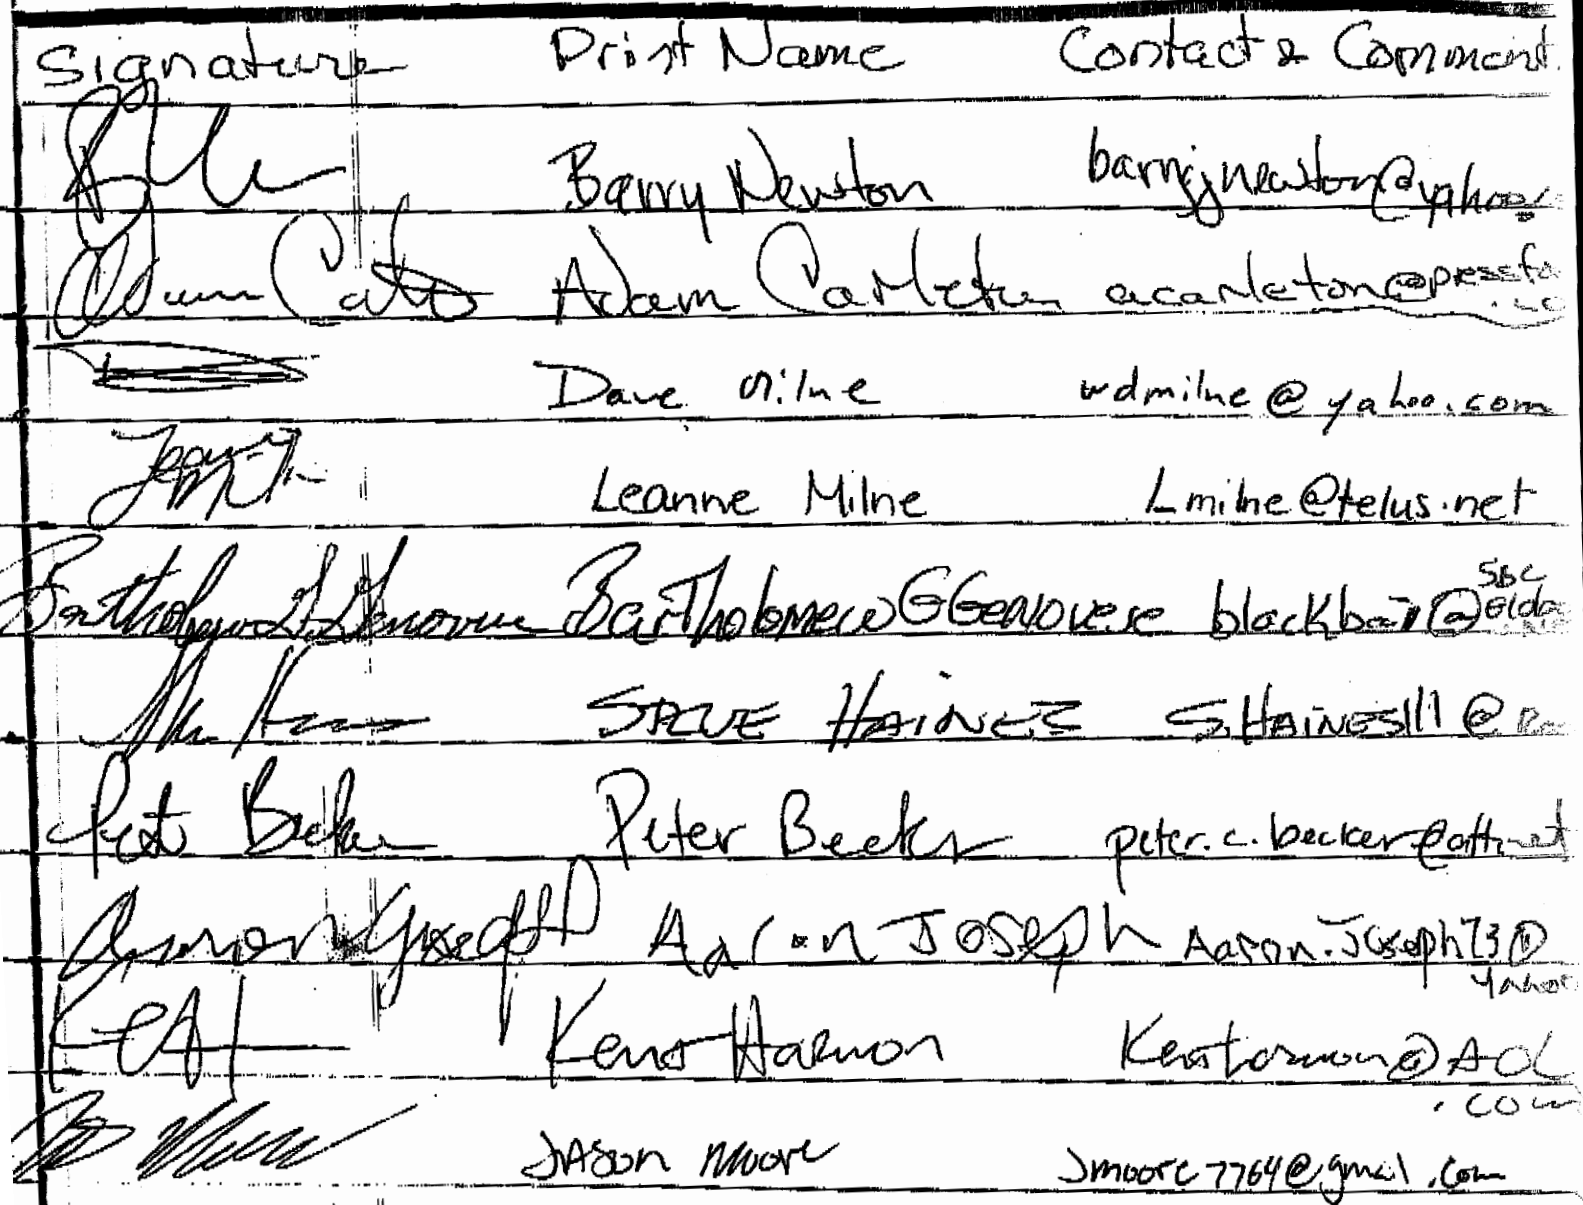 Signature Print Name Contact & Comment
Barry Newton barryjnewton@yahoo
Adam Carleton acarleton@pressfa
.co
Dave Milne wdmilne@yahoo.com
Leanne Milne Lmilne@telus.net
Bartholomew G Genovese BarTholomew G Genovese blackbair@sbc
STEVE HAINES S.HAINES111@
Peter Becker Peter Becker peter.c.becker@att.net
Aaron Joseph Aaron Joseph Aaron.Joseph73@
yahoo
Kent Harmon Kentarmon@AOL
.com
JASON MOORE Jmoore7764@gmail.com